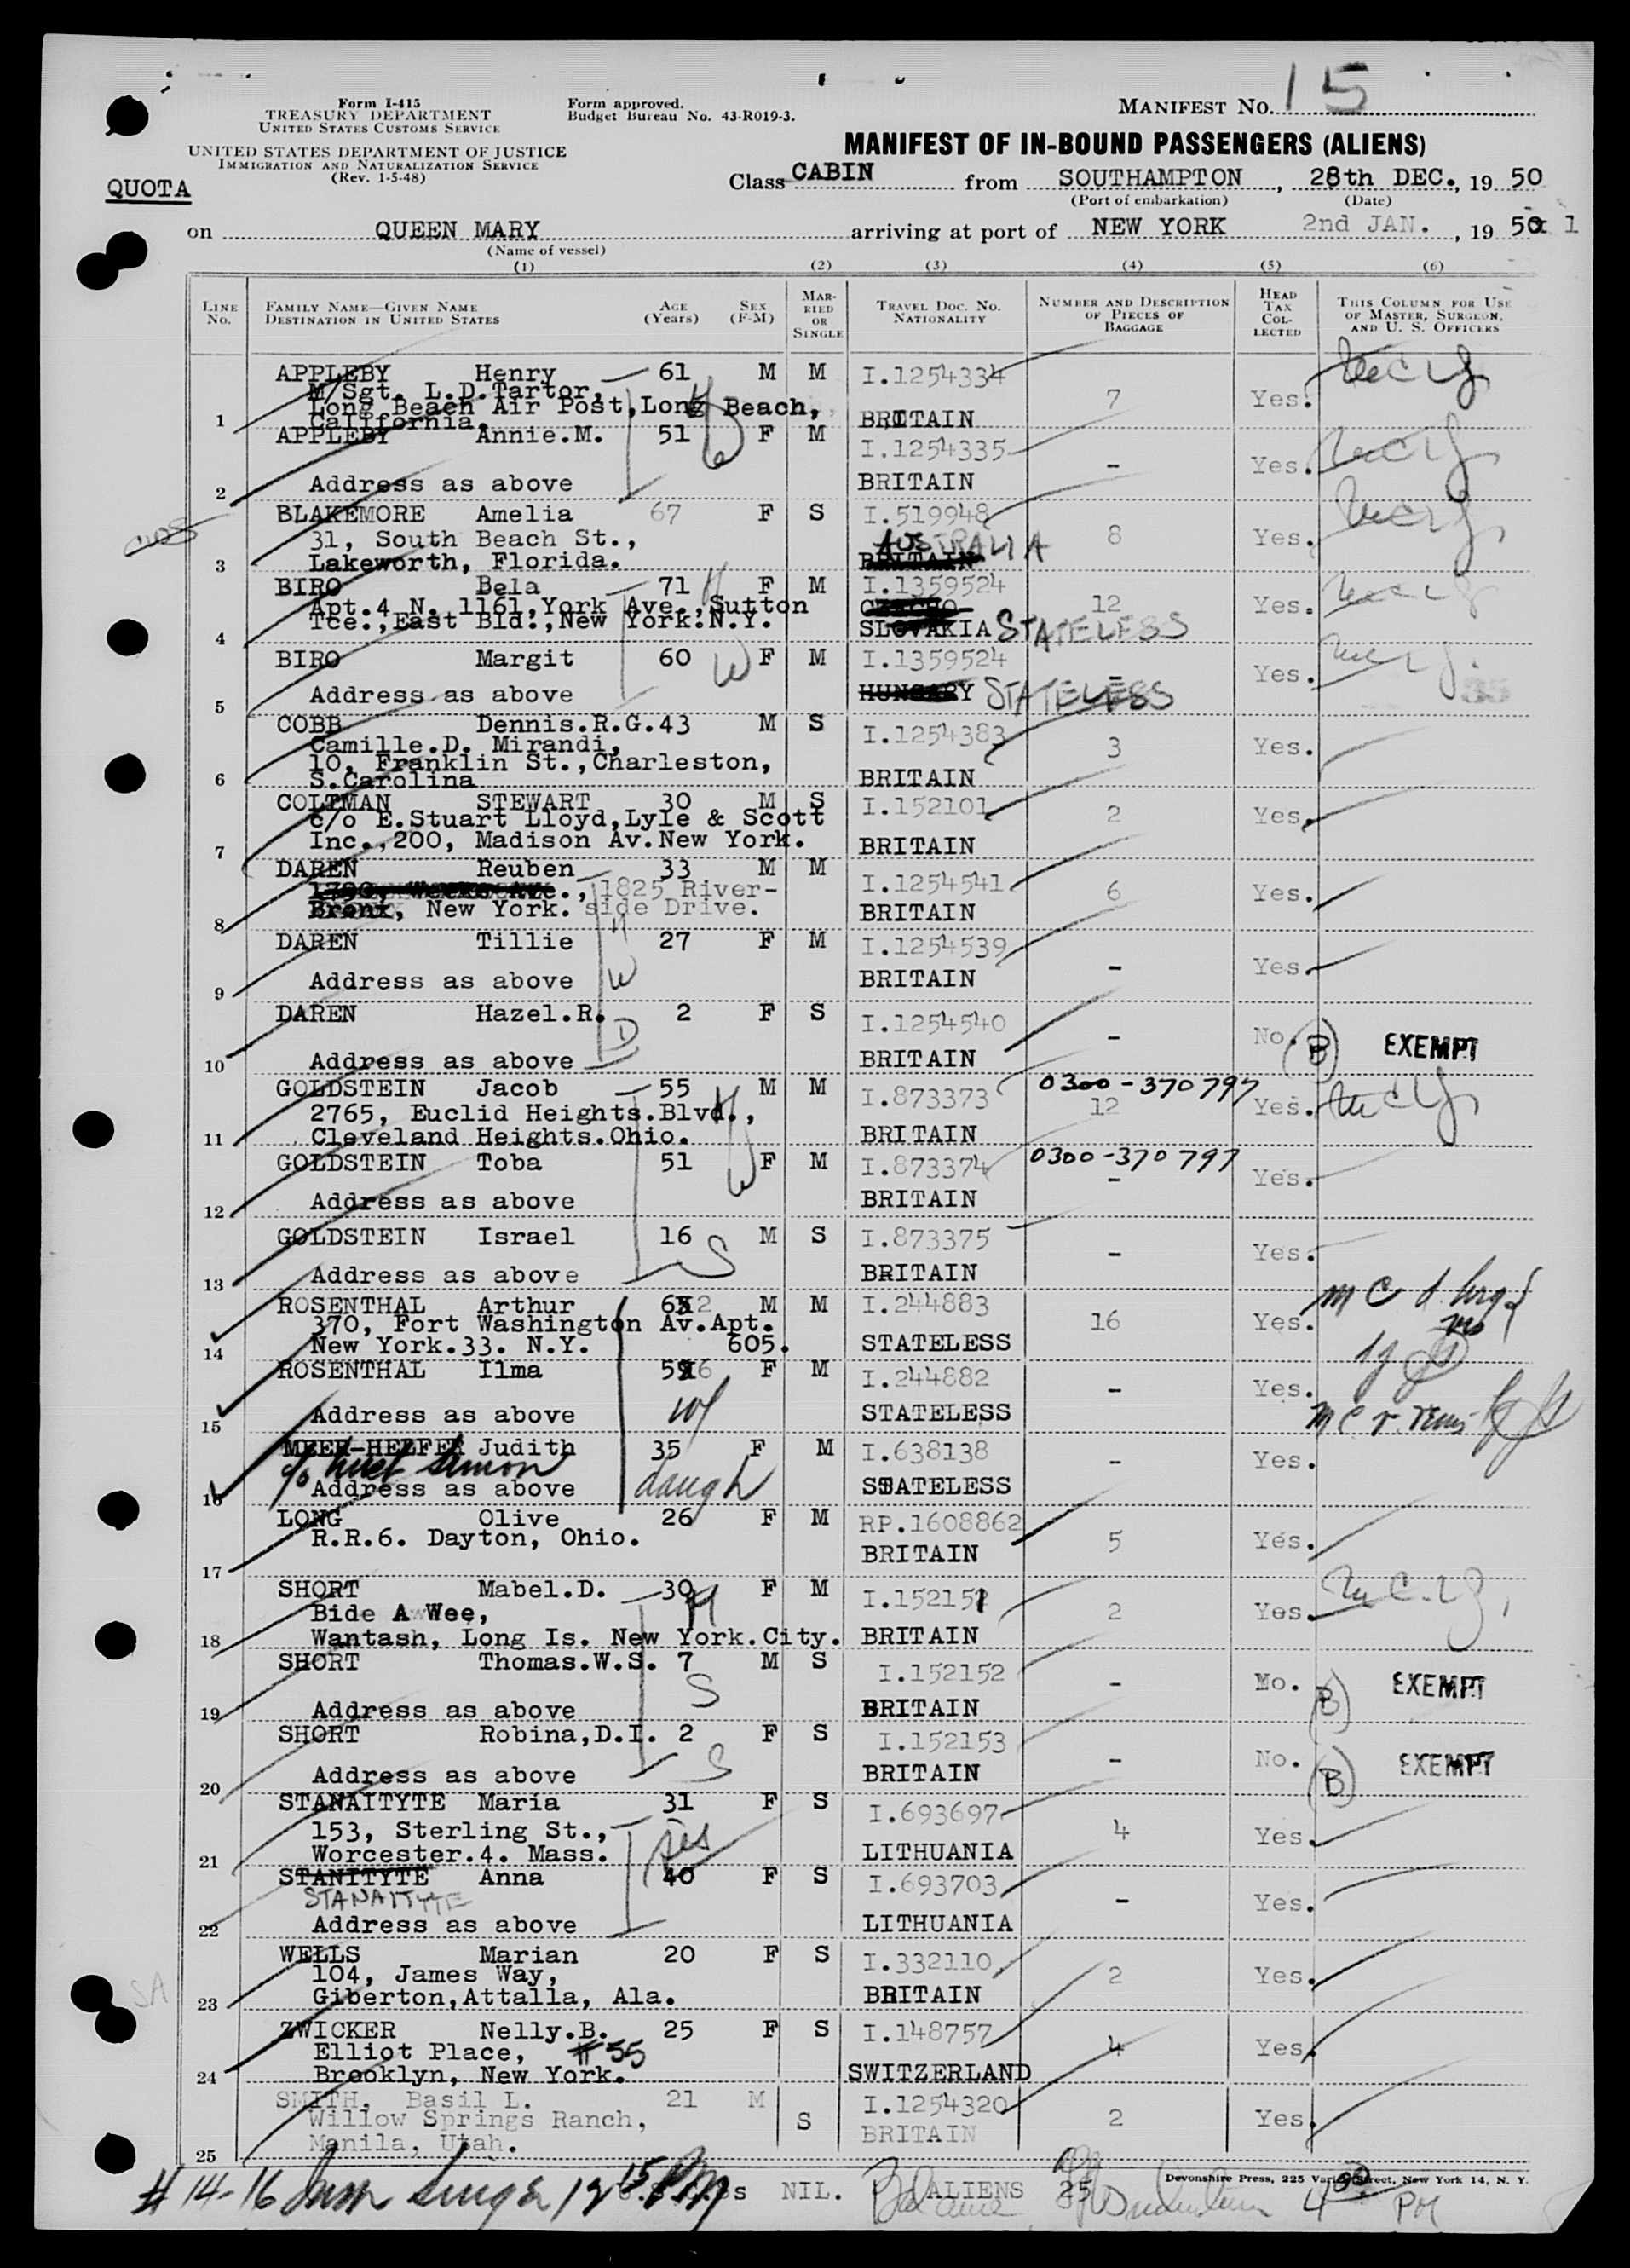 15
Form I-415
TREASURY DEPARTMENT
UNITED STATES CUSTOMS SERVICE
Form approved.
Budget Bureau No. 43-R019-3.
MANIFEST NO.
UNITED STATES DEPARTMENT OF JUSTICE
IMMIGRATION AND NATURALIZATION SERVICE
(Rev. 1-5-48)
MANIFEST OF IN-BOUND PASSENGERS (ALIENS)
QUOTA
Class CABIN from SOUTHAMPTON, 28th DEC., 19 50
(Port of embarkation) (Date)
on QUEEN MARY arriving at port of NEW YORK 2nd JAN., 19 5 1
(Name of vessel)
(1) (2) (3) (4) (5) (6)
LINE NO.
FAMILY NAME—GIVEN NAME DESTINATION IN UNITED STATES
AGE (Years)
SEX (F-M)
MARRIED OR SINGLE
TRAVEL DOC. NO. NATIONALITY
NUMBER AND DESCRIPTION OF PIECES OF BAGGAGE
HEAD TAX COLLECTED
THIS COLUMN FOR USE OF MASTER, SURGEON, AND U. S. OFFICERS
APPLEBY Henry 61 M M I.1254334 7 Yes.
M/Sgt. L.D.Tartor,
Long Beach Air Post,Long Beach,
1 California. BRITAIN
APPLEBY Annie.M. 51 F M I.1254335 - Yes.
2 Address as above BRITAIN
BLAKEMORE Amelia 67 F S I.519948 8 Yes.
31, South Beach St., AUSTRALIA
3 Lakeworth, Florida. BRITAIN
BIRO Bela 71 F M I.1359524 12 Yes.
Apt.4 N. 1161,York Ave.,Sutton CZECHO
Tce.,East Bld.,New York.N.Y. SLOVAKIA STATELESS
4
BIRO Margit 60 W F M I.1359524 - Yes.
5 Address as above HUNGARY STATELESS
COBB Dennis.R.G.43 M S I.1254383 3 Yes.
Camille.D. Mirandi,
10, Franklin St.,Charleston,
6 S.Carolina BRITAIN
COLTMAN STEWART 30 M S I.152101 2 Yes.
c/o E.Stuart Lloyd,Lyle & Scott
7 Inc.,200, Madison Av.New York. BRITAIN
DAREN Reuben 33 M M I.1254541 6 Yes.
1825 River-
8 Bronx, New York. side Drive. BRITAIN
DAREN Tillie 27 F M I.1254539 - Yes.
9 Address as above W BRITAIN
DAREN Hazel.R. 2 F S I.1254540 - No. B EXEMPT
10 Address as above D BRITAIN
GOLDSTEIN Jacob 55 M M I.873373 0300-370797 12 Yes.
2765, Euclid Heights.Blvd.,
11 Cleveland Heights.Ohio. BRITAIN
GOLDSTEIN Toba 51 W F M I.873374 0300-370797 - Yes.
12 Address as above BRITAIN
GOLDSTEIN Israel 16 M S I.873375 - Yes.
13 Address as above S BRITAIN
ROSENTHAL Arthur 62 M M I.244883 16 Yes.
370, Fort Washington Av.Apt.
14 New York.33. N.Y. 605. STATELESS
ROSENTHAL Ilma 56 F M I.244882 - Yes.
15 Address as above STATELESS
MEER-HELFER Judith 35 F M I.638138 - Yes.
16 Address as above daugh STATELESS
LONG Olive 26 F M RP.1608862 5 Yes.
R.R.6. Dayton, Ohio.
17 BRITAIN
SHORT Mabel.D. 30 F M I.152151 2 Yes.
Bide A Wee,
18 Wantash, Long Is. New York.City. BRITAIN
SHORT Thomas.W.S. 7 M S I.152152 - No. B EXEMPT
19 Address as above S BRITAIN
SHORT Robina,D.I. 2 F S I.152153 - No. B EXEMPT
20 Address as above S BRITAIN
STANAITYTE Maria 31 F S I.693697 4 Yes.
153, Sterling St.,
21 Worcester.4. Mass. LITHUANIA
STANITYTE Anna 40 F S I.693703 - Yes.
STANAITYTE
22 Address as above LITHUANIA
WELLS Marian 20 F S I.332110 2 Yes.
104, James Way,
23 Giberton,Attalla, Ala. BRITAIN
ZWICKER Nelly.B. 25 F S I.148757 4 Yes.
Elliot Place, #55
24 Brooklyn, New York. SWITZERLAND
SMITH, Basil L. 21 M S I.1254320 2 Yes.
Willow Springs Ranch, BRITAIN
25 Manila, Utah.
Devonshire Press, 225 Varick Street, New York 14, N. Y.
# 14-16 NIL. ALIENS 25